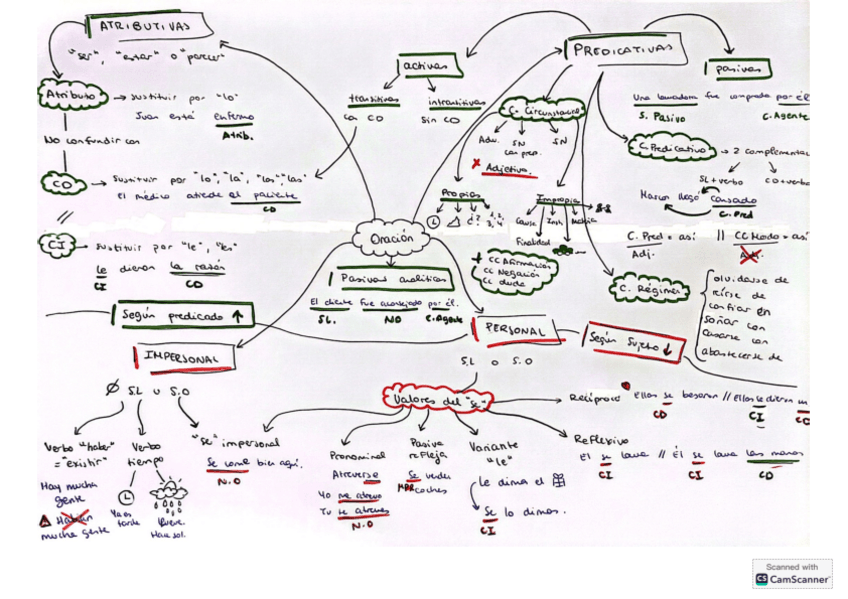 ATRIBUTIVAS
"ser", "estar" o "parecer"
Atributo → sustituir por "lo"
Juan está enfermo
Atrib.
No confundir con
CD → sustituir por "lo", "la", "los", "las"
El médico atiende al paciente
CD
//
CI → sustituir por "le", "les"
Le dieron la razón
CI CD
Según predicado ↑
activas
transitivas
con CD
intransitivas
sin CD
PREDICATIVAS
pasivas
Una lavadora fue comprada por él
S. Pasivo C. Agente
C. Circunstancial
Adv.
SN
con prep.
SN
Adjetivo
Propios
Impropia
Causa Inst. Materia
Finalidad
+ CC Afirmación
CC Negación
CC duda
C. Predicativo → 2 complementa
SL + verbo CD + verbo
Marcos llegó cansado
C. Pred
C. Pred = así // CC Modo = así
Adj. Adj.
C. Régimen
olvidarse de
reírse de
confiar en
soñar con
casarse con
abastecerse de
Oración
Pasivas analíticas
El cliente fue aconsejado por él.
SL. NO C. Agente
PERSONAL
S.L o S.O
Según Sujeto ↓
IMPERSONAL
Ø S.L u S.O
Verbo "haber"
= "existir"
Hay mucha
gente
Habían
mucha gente
Verbo
tiempo
Ya es
tarde
Llueve.
Hace sol.
"se" impersonal
Se come bien aquí.
N.O
Valores del "se"
Pronominal
Atreverse
Yo me atrevo
Tu te atreves
N.O
Pasiva
refleja
Se venden
MPR coches
Variante
"le"
Le dimos el
Se lo dimos.
CI
Reflexivo
Él se lava // Él se lava las manos
CI CI CD
Recíproco Ellos se besaron // Ellos se dieron un
CD CI CD
Scanned with
CS CamScanner